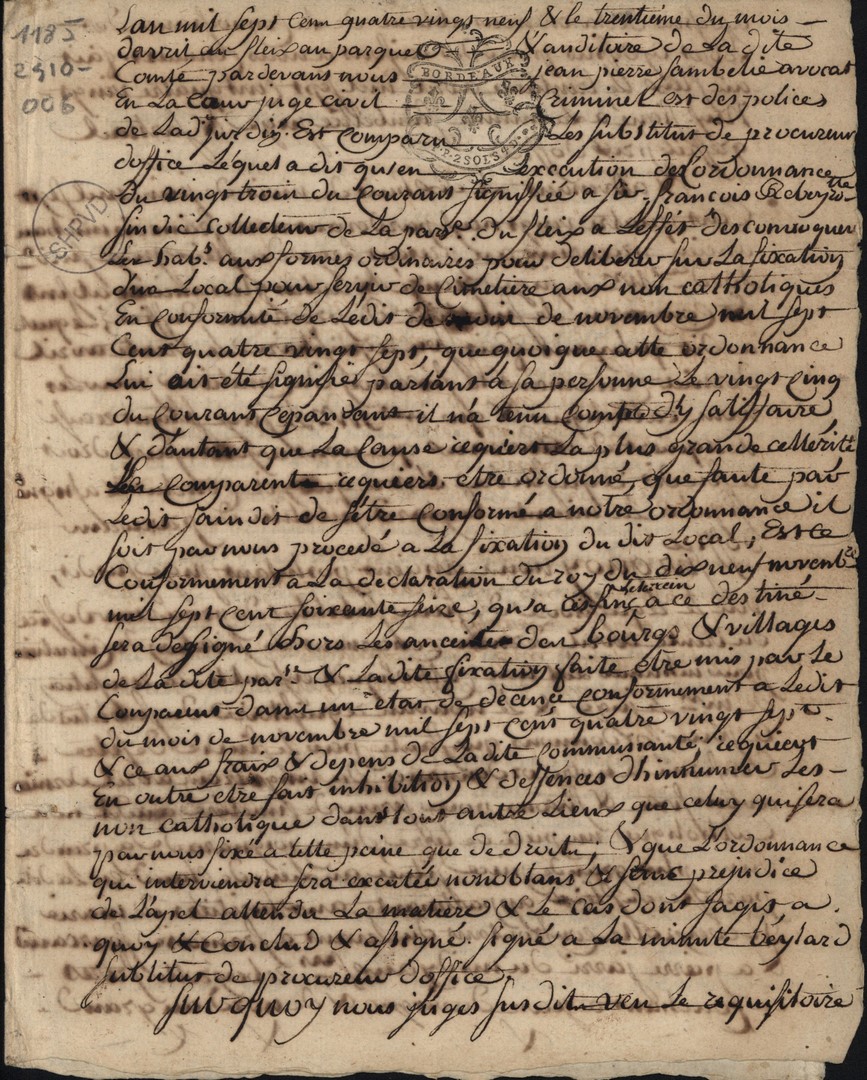 1185
2910-
006
BORDEAUX
2 SOLS
SHPVD
Lan mil sept cent quatre vingt neuf & le trentième du mois -
davril au fleix au parquet & auditoire de La dite
Comté pardevans nous jean pierre avocat
En La Cour juge civil Criminel est des polices
de Lad. jurdin. Est comparu Les substitut de procureur
doffice Léquel a dit qu'en Lexecution de Lordonnance
du vingt troin du Courant signiffiée a sr. françois
sindic Collecteur de La parse. du fleix a Leffét des convoquer
Les habs. aux formes ordinaires pour deliberer sur La fixation
dun Local pour servir de Cimetière aux non catholiques
En conformité de Ledit de de novembre mil sept
Cent quatre vingt sept, que quoique cette ordonnance
Lui ait été signifiée parlant a sa personne Le vingt cinq
du Courant cepandant il n'a tenu compte d'y satisfaire
& dautant que La Cause requiert La plus grande cellérité
Le Comparent requiers être ordonné, que faute par
Ledit saindit de s'être conformé a notre ordonnance il
soit par nous procedé a La fixation du dit Local, Est ce
Conformement a La déclaration du roy du dix neuf novembre
mil sept cent soixante seize, qu'a cest fins Le terrain a ce destiné -
sera dessigné hors Les des bourgs & villages
de La dite parse. & La dite fixation faite être mis par Le
Comparent dans un état de décence conformement a Ledit
du mois de novembre mil sept cent quatre vingt sept.
& ce aux fraix & depens de La dite communauté, requiert
En outre être fait inhibition & deffences dhinhumer Les -
non catholique dans tout autre Lieux que celuy qui sera
par nous fixé a telle paine que de droit; & que L'ordonnance
qui interviendra sera excutée nonobtans & sans prejudice
de L'apel attendu La matière & Le cas dont sagit, a
quoy & Conclud & assigné. signé a La minute béylard
subtitut de procureur doffice.
sur quoy nous juges susdit veu Le requisitoire